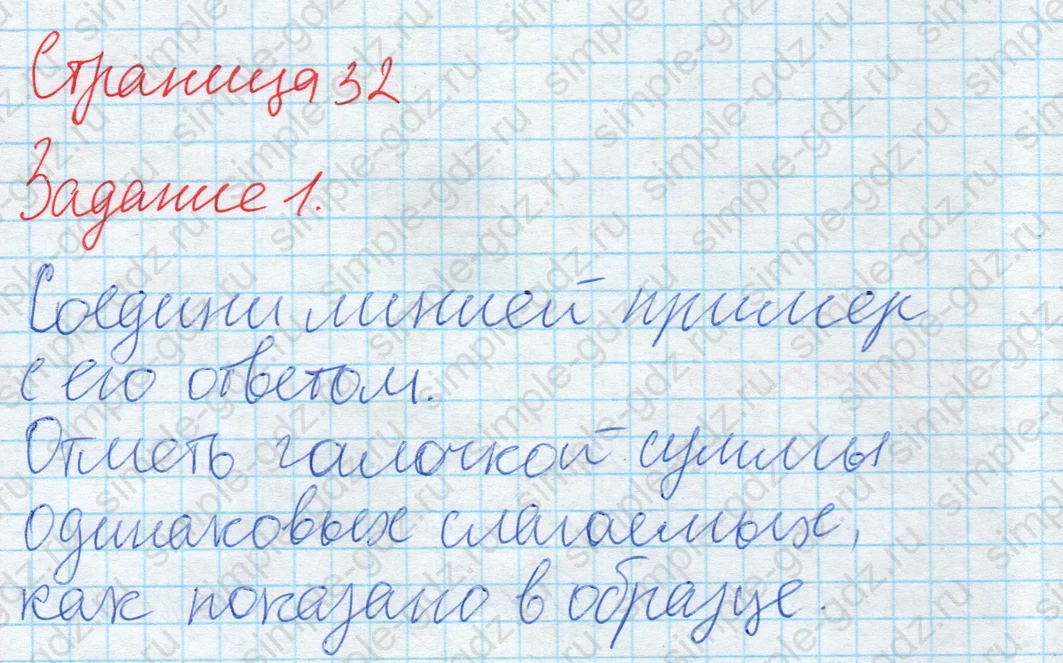 Страница 32
Задание 1.
Соедини линией пример
с его ответом.
Отметь галочкой суммы
одинаковых слагаемых,
как показано в образце.